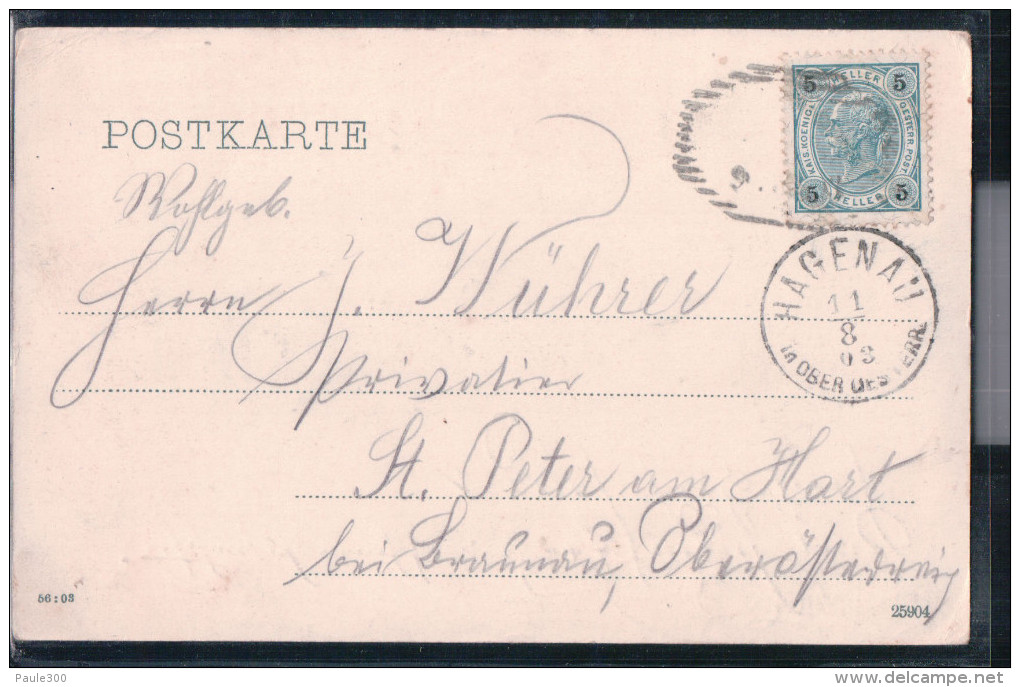 POSTKARTE
KAIS. KOENIGL. OESTERR. POST
5 HELLER 5
5 HELLER 5
9.
Wohlgeb.
Herrn J. Wührer
HAGENAU
11
8
03
in OBER OESTERR.
Privatier
St. Peter am Hart
bei Braunau, Oberösterreich
56:03
25904
Paule300
www.delcampe.net